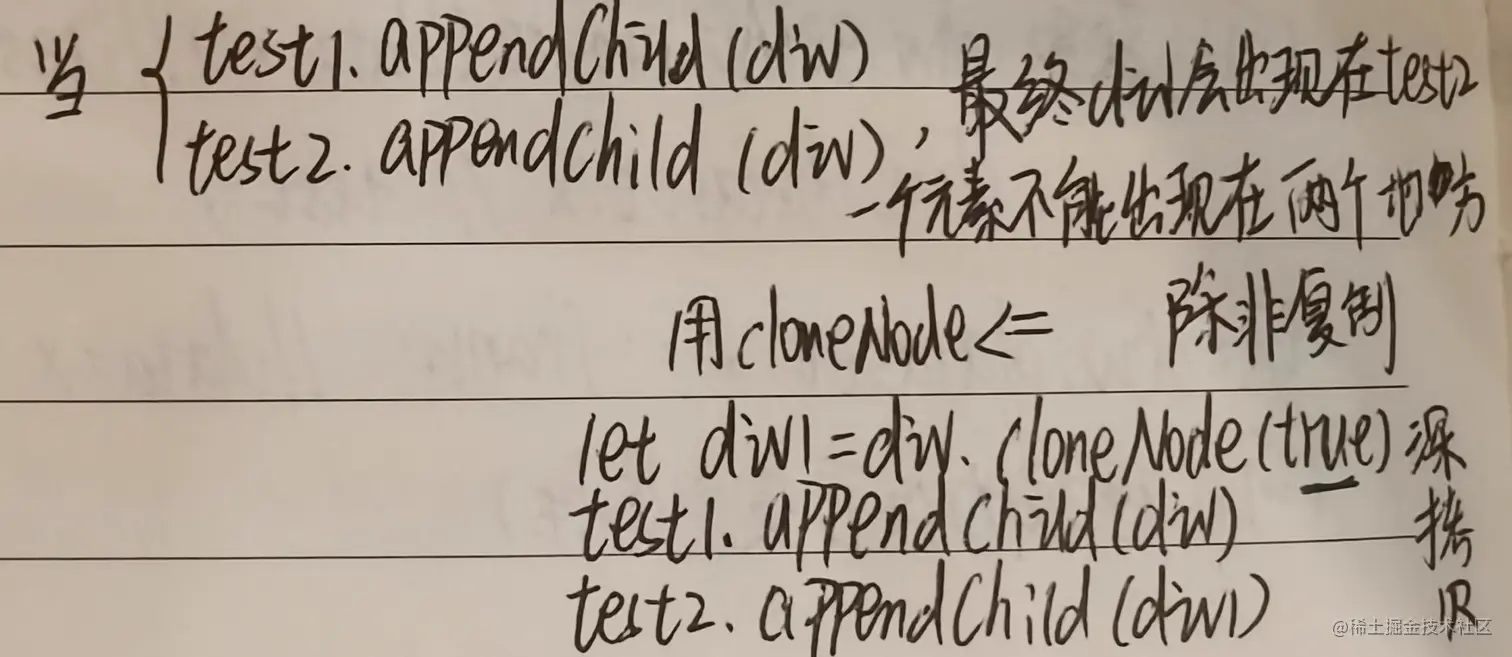 当 { test1.appendChild(div)
test2.appendChild(div), 最终div会出现在test2
一个元素不能出现在两个地方
用cloneNode<= 除非复制
let div1=div.cloneNode(true) 深拷贝
test1.appendChild(div)
test2.appendChild(div1)
@稀土掘金技术社区